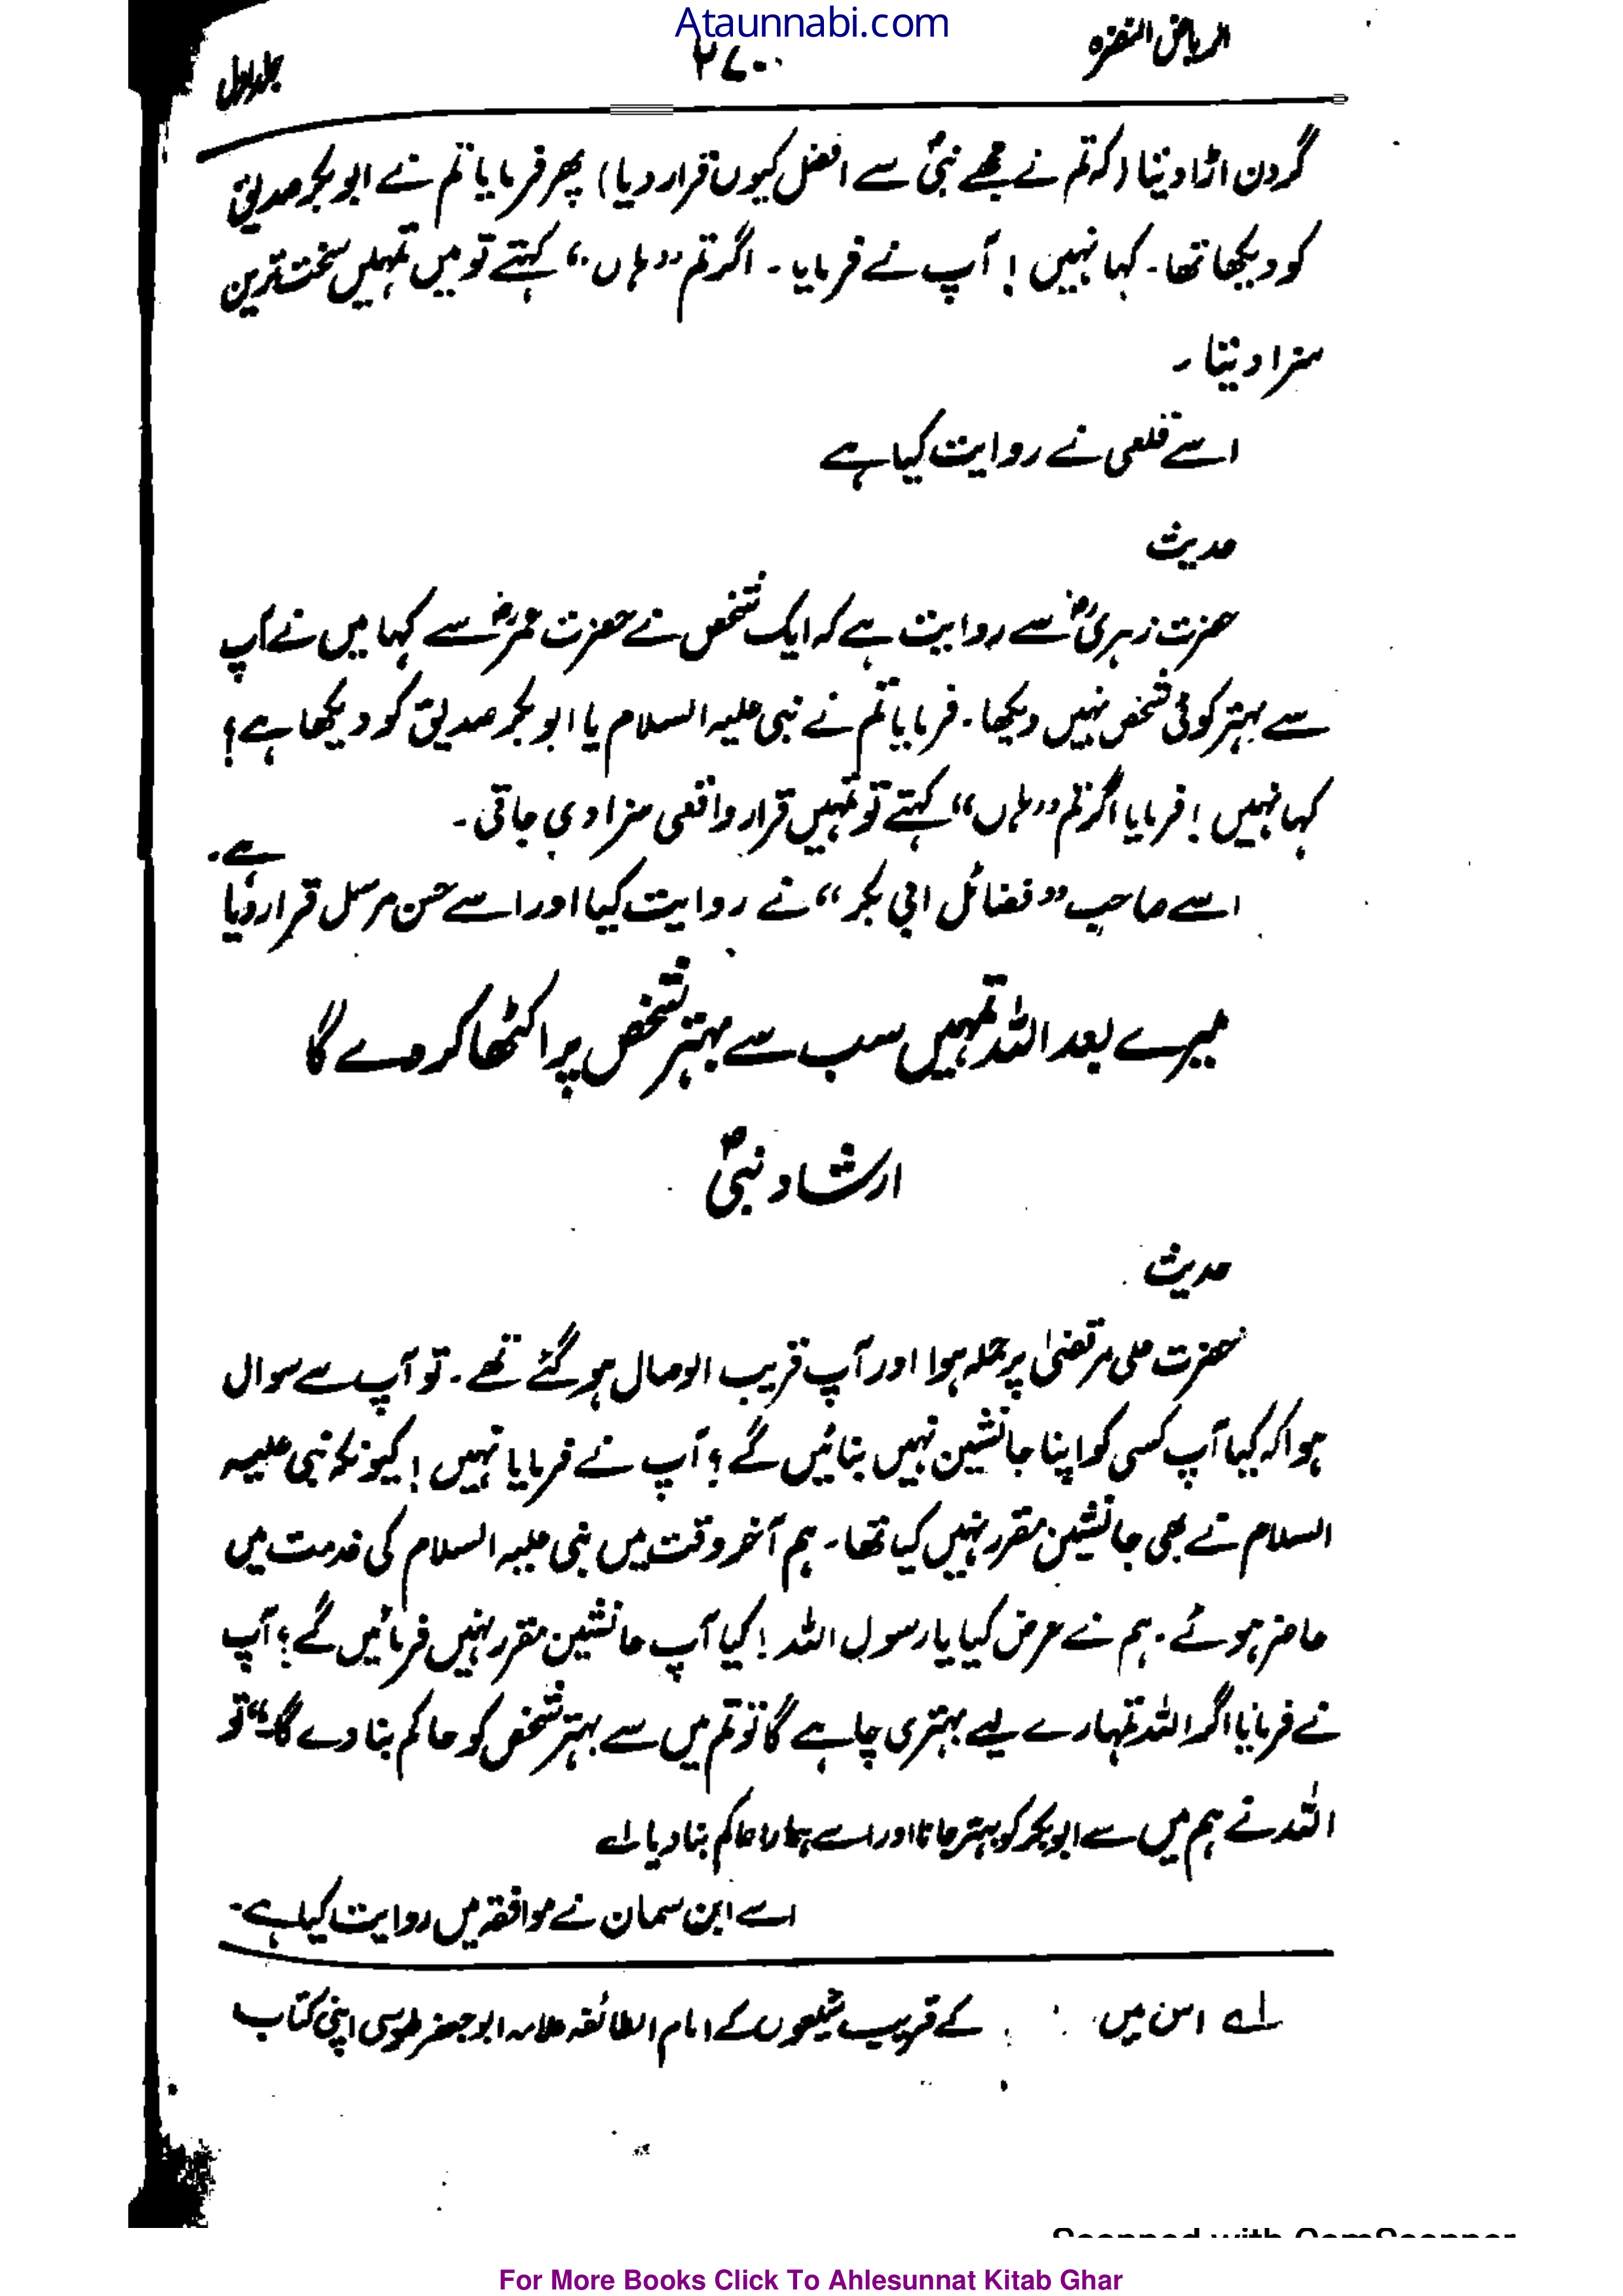 Ataunnabi.com
الریاض النضرہ
۲۷۰
جلد اول
گردن اڑا دیتا (کہ تم نے مجھے نبیؐ سے افضل کیوں قرار دیا) پھر فرمایا تم نے ابو بکر صدیق
کو دیکھا تھا۔ کہا نہیں ! آپ نے فرمایا۔ اگر تم ”ہاں“ کہتے تو میں تمہیں سخت ترین
سزا دیتا۔
اسے قلعی نے روایت کیا ہے
حدیث
حضرت زہریؓ سے روایت ہے کہ ایک شخص نے حضرت عمرؓ سے کہا میں نے آپ
سے بہتر کوئی شخص نہیں دیکھا۔ فرمایا تم نے نبی علیہ السلام یا ابو بکر صدیق کو دیکھا ہے؟
کہا نہیں ! فرمایا اگر تم ”ہاں“ کہتے تو تمہیں قرار واقعی سزا دی جاتی۔
اسے صاحب ”فضائل ابی بکر“ نے روایت کیا اور اسے حسن مرسل قرار دیا ہے۔
میرے بعد اللہ تمہیں سب سے بہتر شخص پر اکٹھا کر دے گا
ارشاد نبیؐ
حدیث
حضرت علی مرتضیٰ پر حملہ ہوا اور آپ قریب الوصال ہو گئے تھے۔ تو آپ سے سوال
ہوا کہ کیا آپ کسی کو اپنا جانشین نہیں بنائیں گے ؟ آپ نے فرمایا نہیں ! کیونکہ نبی علیہ
السلام نے بھی جانشین مقرر نہیں کیا تھا۔ ہم آخر وقت میں نبی علیہ السلام کی خدمت میں
حاضر ہوئے۔ ہم نے عرض کیا یا رسول اللہ ! کیا آپ جانشین مقرر نہیں فرمائیں گے ؟ آپ
نے فرمایا اگر اللہ تمہارے لیے بہتری چاہے گا تو تم میں سے بہتر شخص کو حاکم بنا دے گا۔“ تو
اللہ نے ہم میں سے ابوبکر کو بہتر جانا اور اسے ہمارا حاکم بنا دیا لے
اسے ابن سمان نے موافقہ میں روایت کیا ہے۔
لے اس میں کے قریب شیعوں کے امام الطائفہ علامہ ابو جعفر طوسی اپنی کتاب
For More Books Click To Ahlesunnat Kitab Ghar